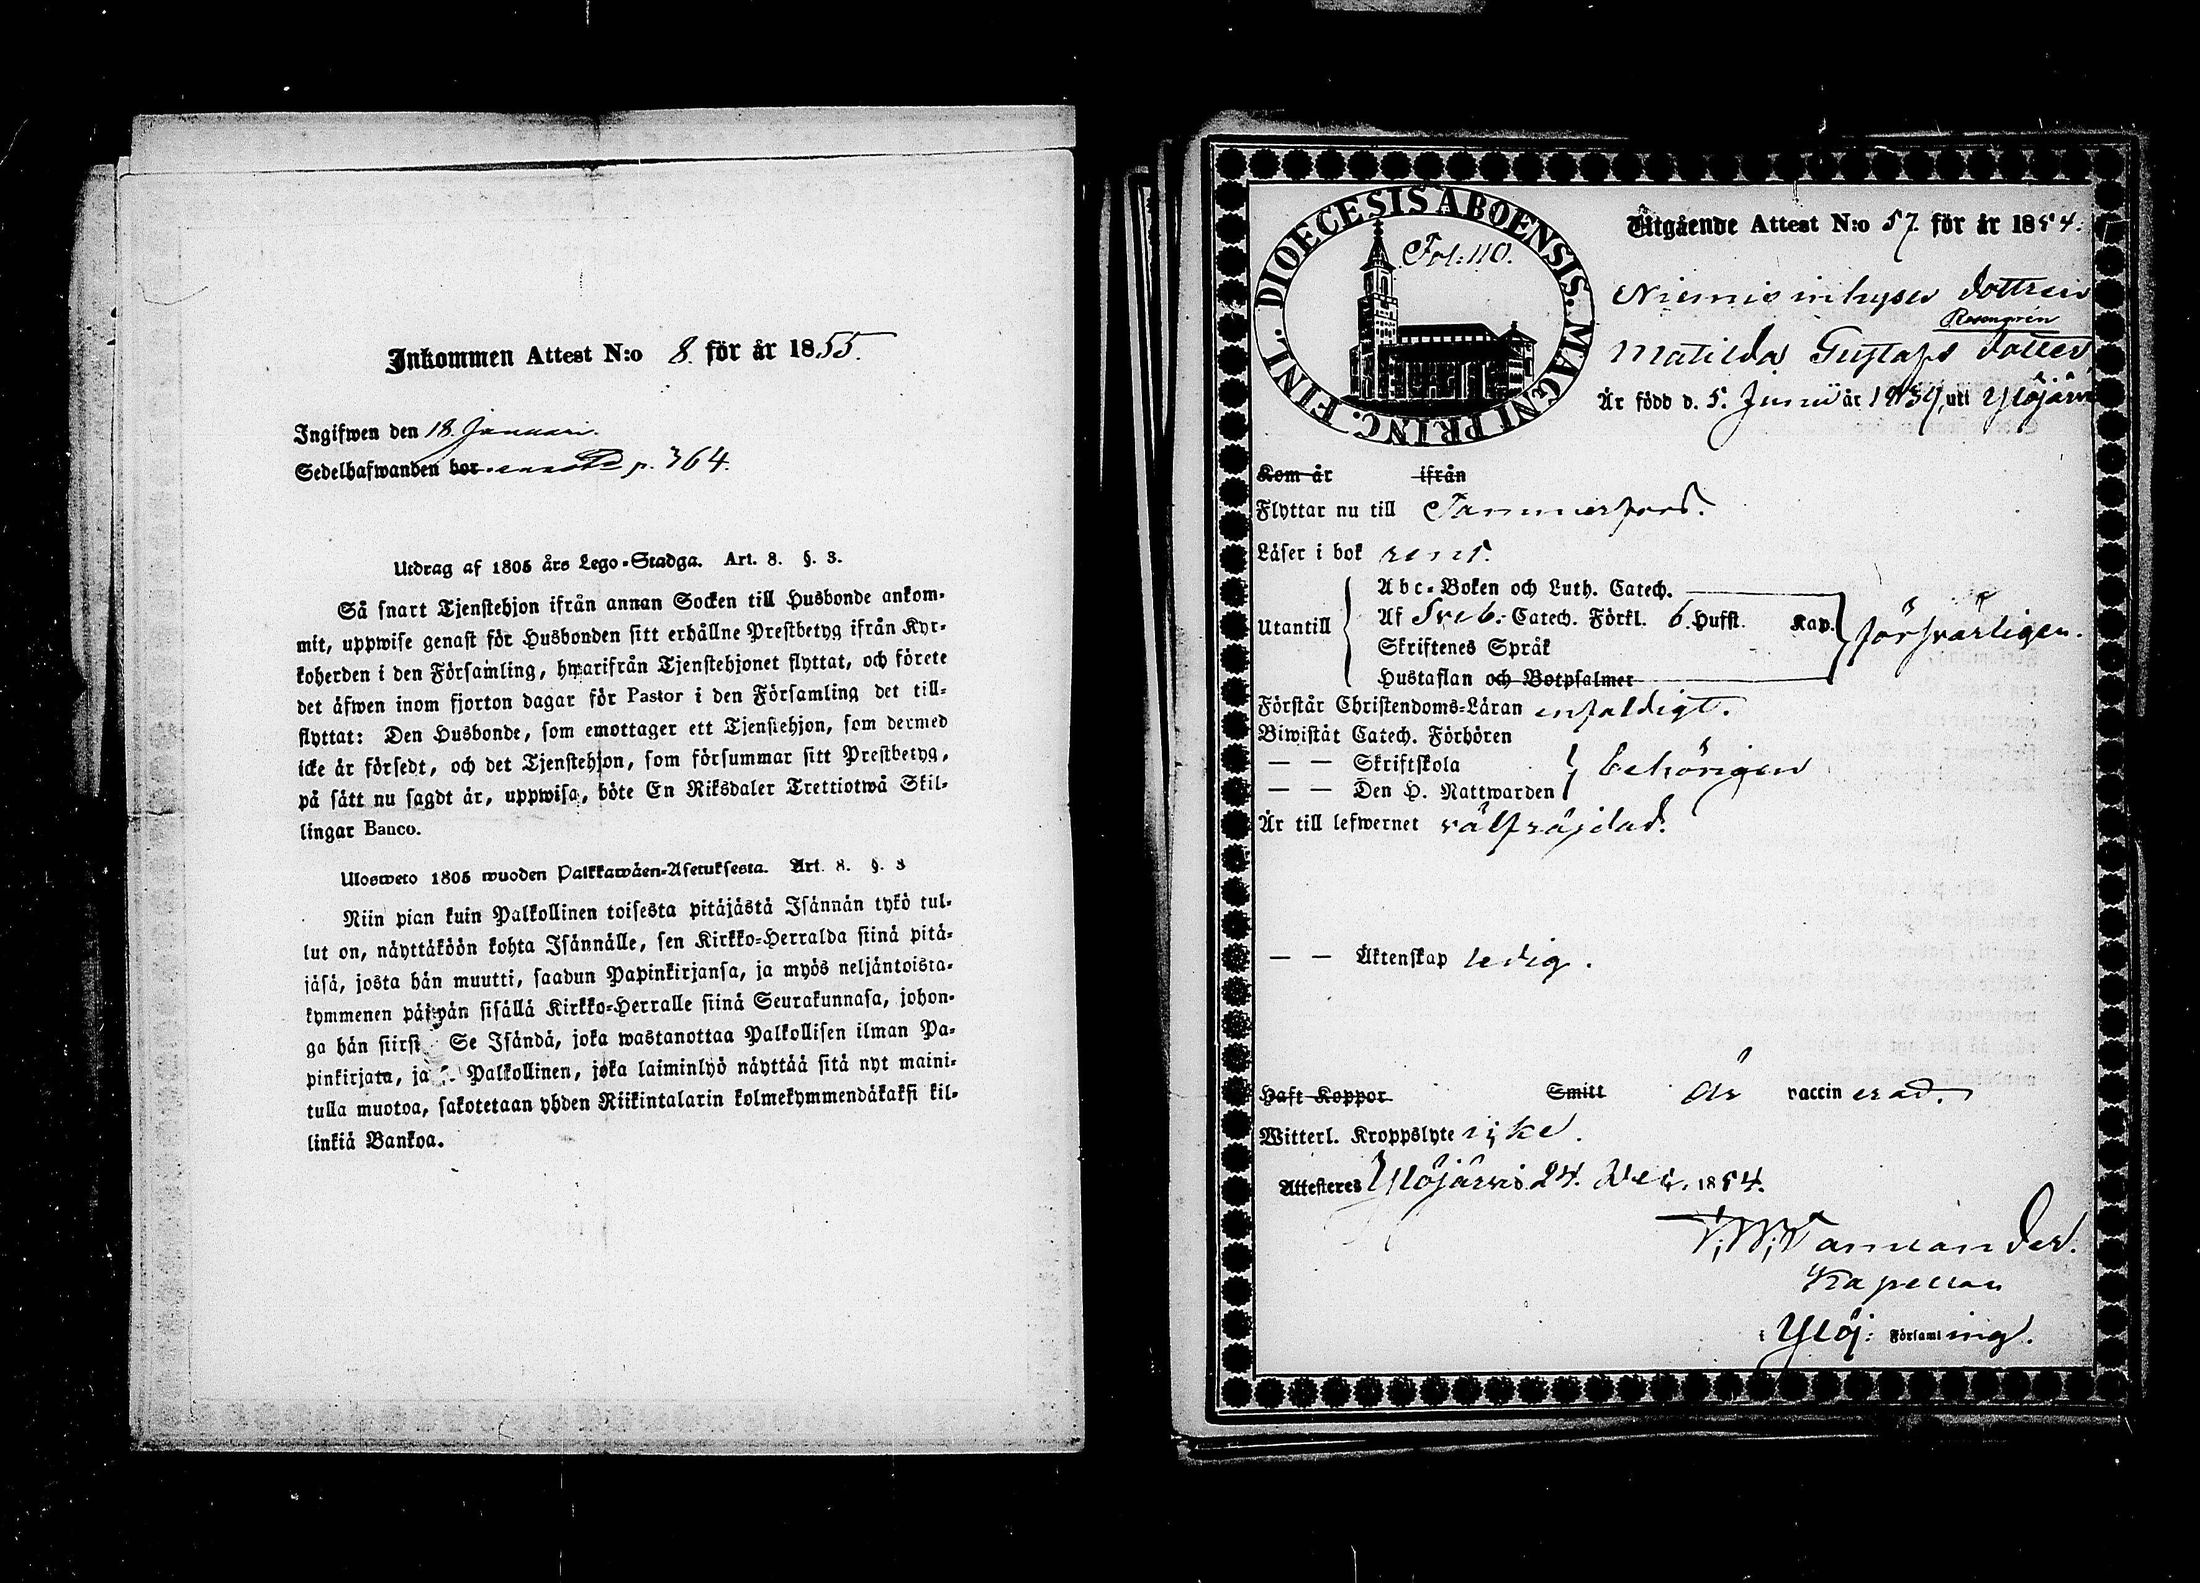 Inkommen Attest N:o 8. för år 1855.
Ingifwen den 18. Januari.
Sedelhafwanden bor p. 364.
Utdrag af 1805 års Lego-Stadga. Art. 8. §. 3.
Så snart Tjenstehjon ifrån annan Socken till Husbonde ankom-
mit, uppwise genast för Husbonden sitt erhållne Prestbetyg ifrån Kyr-
koherden i den Församling, hwarifrån Tjenstehjonet flyttat, och förete
det äfwen inom fjorton dagar för Pastor i den Församling det till-
flyttat: Den Husbonde, som emottager ett Tjenstehjon, som dermed
icke är försedt, och det Tjenstehjon, som försummar sitt Prestbetyg,
på sätt nu sagdt är, uppwisa, böte En Riksdaler Trettiotwå Skil-
lingar Banco.
Ulosweto 1805 wuoden Palkkawäen-Asetuksesta. Art. 8. §. 3
Niin pian kuin Palkollinen toisesta pitäjästä Isännän tykö tul-
lut on, näyttäköön kohta Isännälle, sen Kirkko-Herralda siinä pitä-
jäsä, josta hän muutti, saadun Papinkirjansa, ja myös neljäntoista-
kymmenen päiwän sisällä Kirkko-Herralle siinä Seurakunnasa, johon-
ga hän siirsi Se Isändä, joka wastanottaa Palkollisen ilman Pa-
pinkirjata, ja Palkollinen, joka laiminlyö näyttää sitä nyt maini-
tulla muotoa, sakotetaan yhden Riikintalarin kolmekymmendäkaksi kil-
linkiä Bankoa.
DIOECESIS ABOENSIS. MAGNI PRINC. FINL.
Fol: 110.
Utgående Attest N:o 57 för år 1854.
Niemis inhyses dottren
Rosengren
Matilda Gustafs dotter
Är född d. 5. Junii år 1834, uti Ylöjärvi
Kom år ifrån
Flyttar nu till Tammerfors.
Läser i bok rent.
Utantill
Abc-Boken och Luth. Catech.
Af Sveb. Catech. Förkl. 6. Hufst. Kap. försvarligen.
Skriftenes Språk
Hustaflan och Botpsalmer
Förstår Christendoms-Läran enfaldigt.
Biwistat Catech. Förhören
— — Skriftskola behörigen
— — Den H. Nattwarden
Är till lefwernet välfräjdad.
— — Äktenskap ledig.
Haft Koppor Smitt är vaccinerad.
Witterl. Kroppslyte icke.
Attesteres Ylöjärvi d. 24. Dec. 1854.
Kapellan
i Ylöj: Församling.